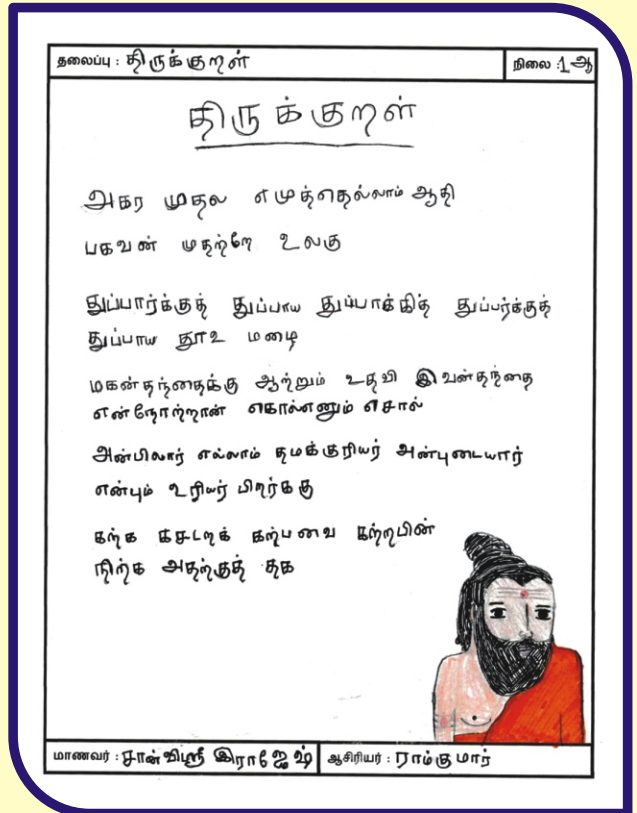 தலைப்பு : திருக்குறள் நிலை : 1ஆ
திருக்குறள்
அகர முதல எழுத்தெல்லாம் ஆதி
பகவன் முதற்றே உலகு
துப்பார்க்குத் துப்பாய துப்பாக்கித் துப்பர்க்குத்
துப்பாய தூஉ மழை
மகன்தந்தைக்கு ஆற்றும் உதவி இவன்தந்தை
என்நோற்றான் கொல்எனும் சொல்
அன்பிலார் எல்லாம் தமக்குரியர் அன்புடையார்
என்பும் உரியர் பிறர்க்கு
கற்க கசடறக் கற்பவை கற்றபின்
நிற்க அதற்குத் தக
மாணவர் : சான்விஸ்ரீ இராஜேஷ் ஆசிரியர் : ராம்குமார்